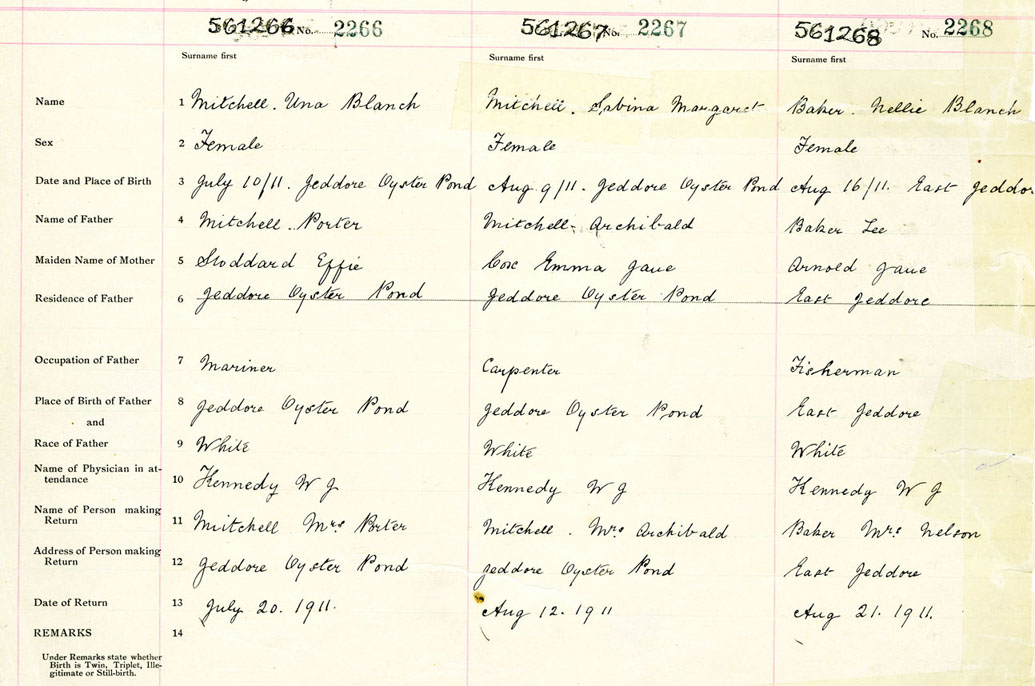 561266 No. 2266 561267 No. 2267 561268 No. 2268
Surname first Surname first Surname first
Name 1 Mitchell. Una Blanch Mitchell. Sabina Margaret Baker. Nellie Blanch
Sex 2 Female Female Female
Date and Place of Birth 3 July 10/11. Jeddore Oyster Pond Aug 9/11. Jeddore Oyster Pond Aug 16/11. East Jeddor
Name of Father 4 Mitchell. Porter Mitchell. Archibald Baker Lee
Maiden Name of Mother 5 Stoddard Effie Cox Emma Jane Arnold Jane
Residence of Father 6 Jeddore Oyster Pond Jeddore Oyster Pond East Jeddore
Occupation of Father 7 Mariner Carpenter Fisherman
Place of Birth of Father 8 Jeddore Oyster Pond Jeddore Oyster Pond East Jeddore
and
Race of Father 9 White White White
Name of Physician in at-
tendance 10 Kennedy W J Kennedy W J Kennedy W J
Name of Person making
Return 11 Mitchell Mrs Porter Mitchell. Mrs Archibald Baker Mrs Nelson
Address of Person making
Return 12 Jeddore Oyster Pond Jeddore Oyster Pond East Jeddore
Date of Return 13 July 20. 1911. Aug 12. 1911 Aug 21. 1911.
REMARKS 14
Under Remarks state whether
Birth is Twin, Triplet, Ille-
gitimate or Still-birth.